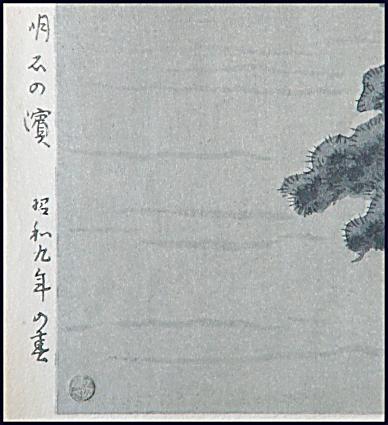 明石の濱 昭和九年の春